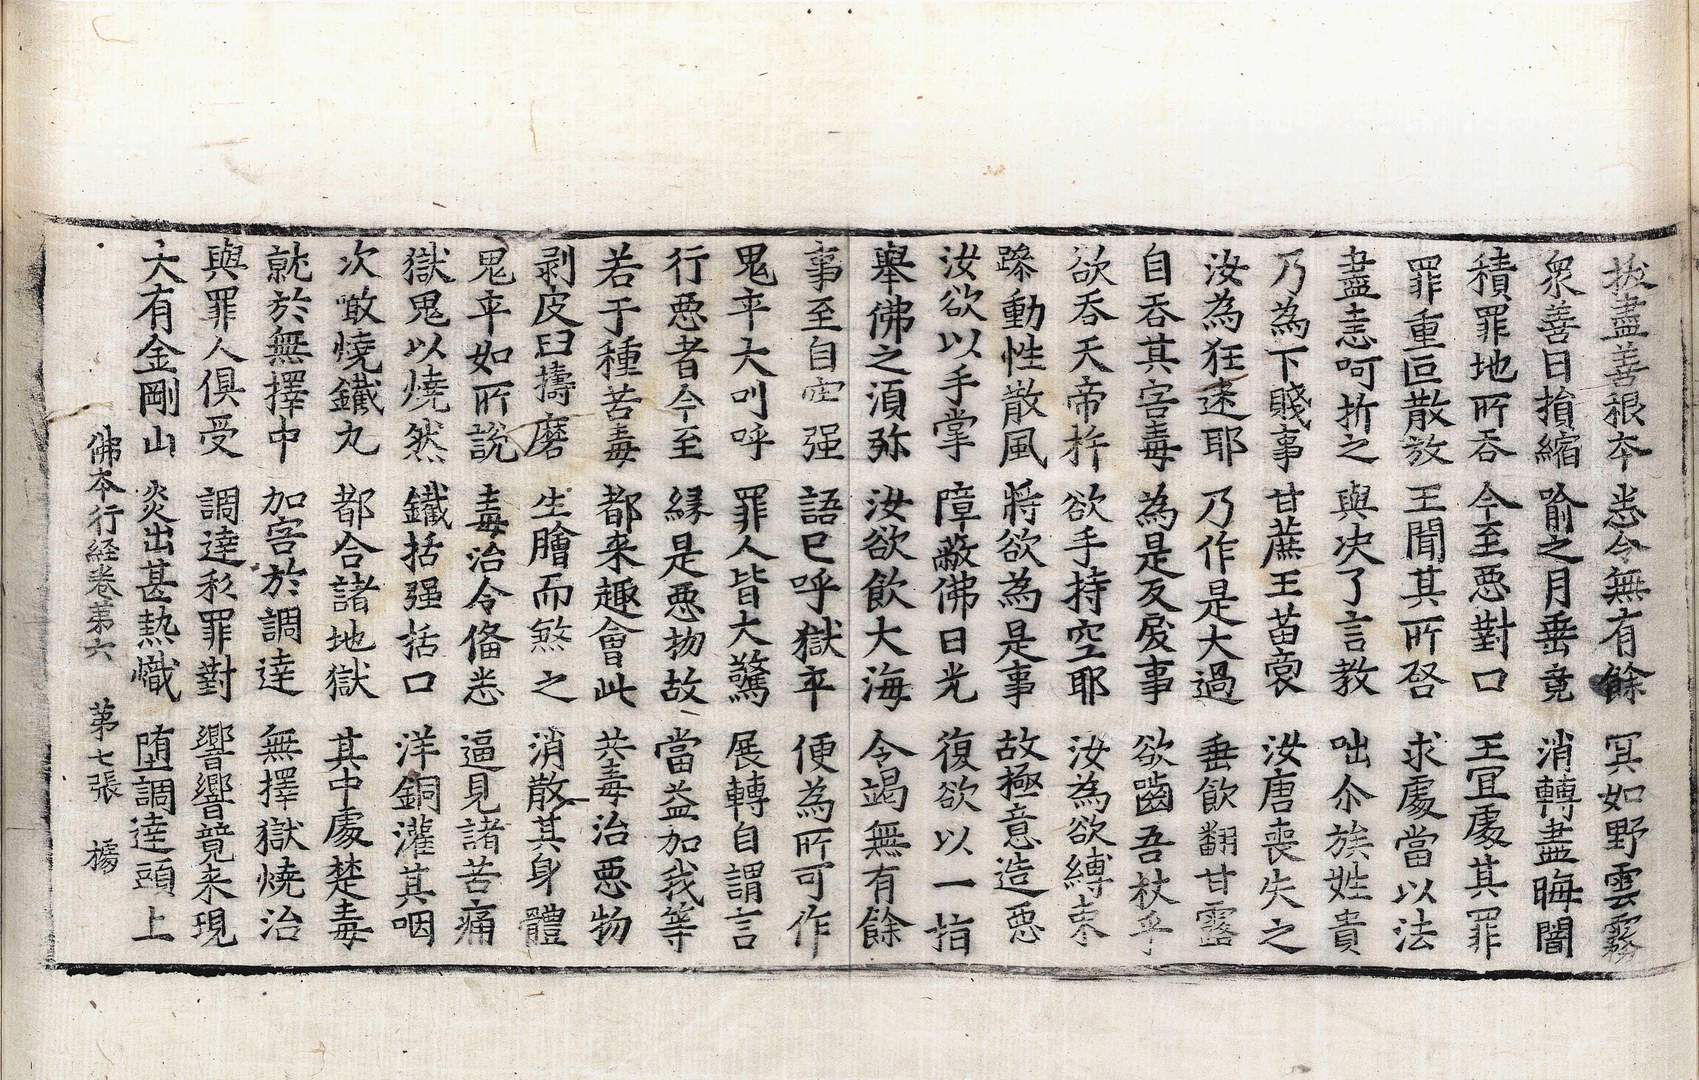 拔盡善根本　悉令無有餘　冥如野雲霧
衆善日損縮　喻之月垂竟　消轉盡晦闇
積罪地所吞　今至惡對口　王宜處其罪
罪重叵散放　王聞其所啓　求處當以法
盡恚呵折之　與决了言教　咄尒族姓貴
乃為下賤事　甘蔗王苗裔　汝唐喪失之
汝為狂速耶　乃作是大過　垂飲翻甘露
自吞其害毒　為是反戾事　欲齧吾杖乎
欲吞天帝杵　欲手持空耶　汝為欲縛束
躁動性散風　將欲為是事　故極意造惡
汝欲以手掌　障蔽佛日光　復欲以一指
舉佛之須弥　汝欲飲大海　令竭無有餘
事至自空强　語已呼獄卒　便為所可作
鬼卒大叫呼　罪人皆大驚　展轉自謂言
行惡者今至　緣是惡物故　當益加我等
若干種苦毒　都来趣會此　共毒治惡物
剥皮臼擣磨　生膾而煞之　消散其身體
鬼卒如所說　毒治令俻悉　逼見諸苦痛
獄鬼以燒然　鐵括强括口　洋銅灌其咽
次噉燒鐵丸　都合諸地獄　其中處楚毒
就於無擇中　加害於調達　無擇獄燒治
與罪人俱受　調達移罪對　響響競来現
大有金剛山　炎出甚熱熾　堕調達頭上
佛本行経卷第六　第七張　㯲